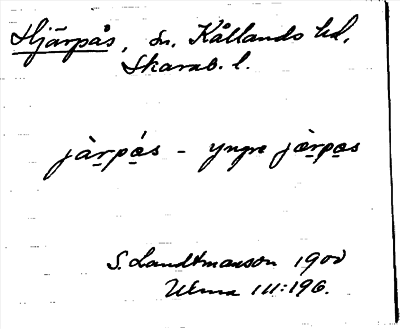 Hjärpås, sn. Kållands hd,
Skarab. l.
jàrpås – yngre jàrpas
S. Landtmanson 1900
Ulma 111:196.